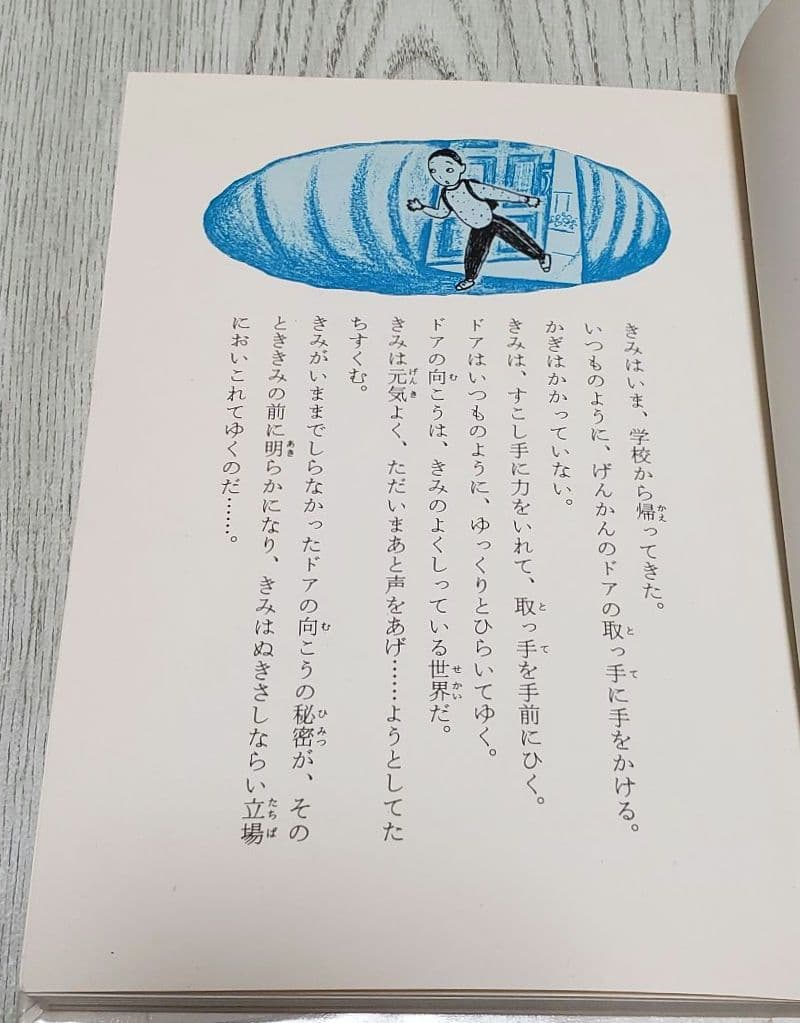 きみはいま、学校から帰ってきた。
いつものように、げんかんのドアの取っ手に手をかける。
かぎはかかっていない。
きみは、すこし手に力をいれて、取っ手を手前にひく。
ドアはいつものように、ゆっくりとひらいてゆく。
ドアの向こうは、きみのよくしっている世界だ。
きみは元気よく、ただいまあと声をあげ……ようとしてた
ちすくむ。
きみがいままでしらなかったドアの向こうの秘密が、その
とききみの前に明らかになり、きみはぬきさしならい立場
においこれてゆくのだ……。